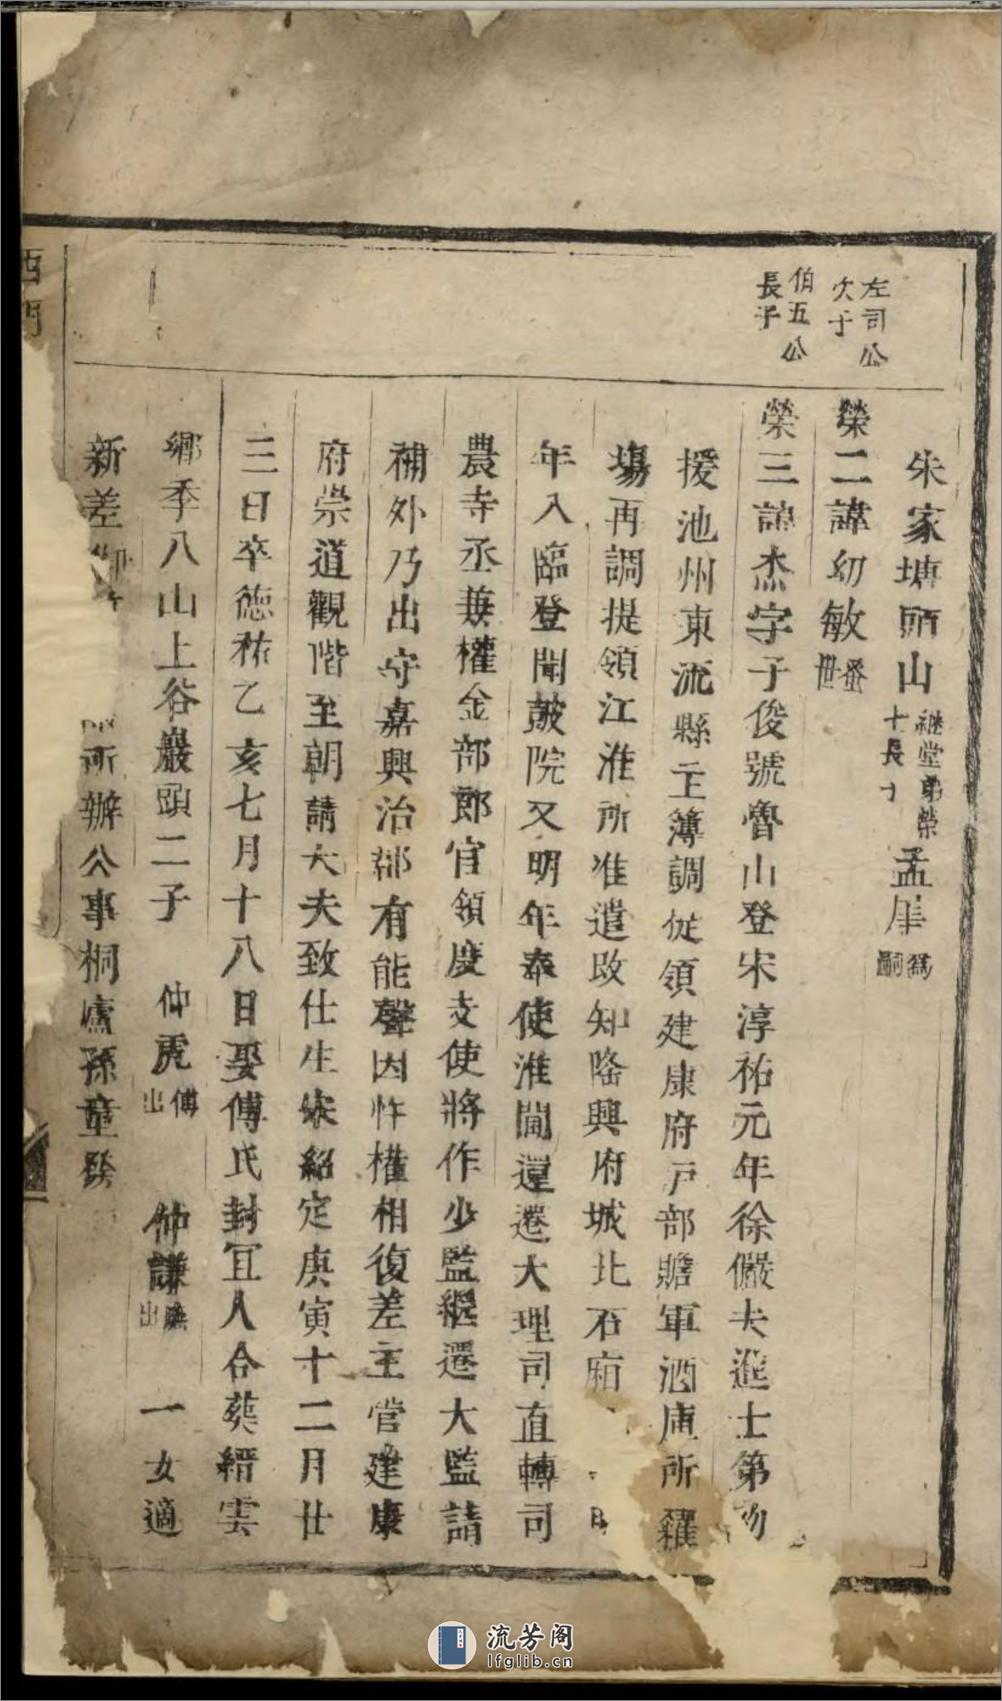 左司公
次子
伯五公
長子
朱家塘頭山
繼堂弟榮
十長子
孟犀
為
嗣
榮二諱幼敏
蚤
世
榮三諱杰字子俊號魯山登宋淳祐元年徐儼夫進士第初
授池州東流縣主簿調從領建康府戶部贍軍酒庫所糴
場再調提領江淮所准遣改知隆興府城北石廂
年入臨登聞鼓院又明年奉使淮閫還遷大理司直轉司
農寺丞兼權金部郎官領度支使將作少監繼遷大監請
補外乃出守嘉興治郡有能聲因忤權相復差主管建康
府崇道觀階至朝請大夫致仕生宋紹定庚寅十二月廿
三日卒德祐乙亥七月十八日娶傅氏封宜人合葬縉雲
鄉季八山上谷巖頭二子
仲虎
傅
出
仲謙
出
一女適
新差
所辦公事桐廬孫童發
西門
流芳阁
lfglib.cn